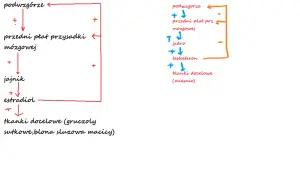 podwzgórze
+
+
przedni płat przysadki
mózgowej
+
+
jajnik
+
estradiol
+
tkanki docelowe (gruczoły
sutkowe,błona śluzowa macicy)
podwzgórze
+
-
przedni płat prz
mózgowej
+
-
jądro
+
testosteron
+
tkanki docelowe
(mięśnie)